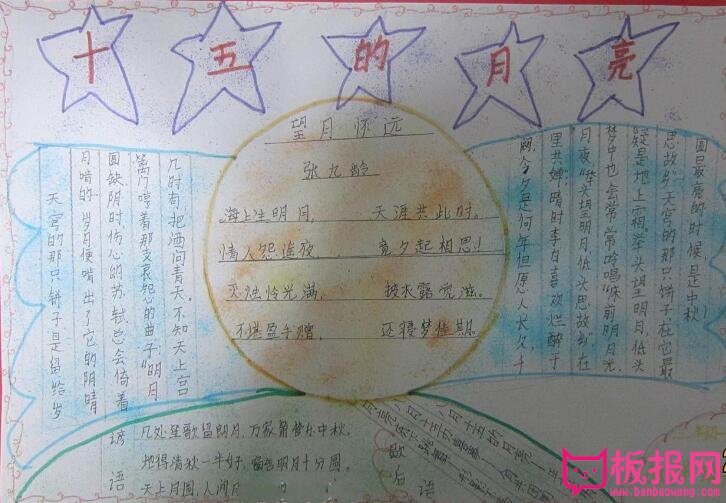 十五的月亮
望月怀远
张九龄
海上生明月, 天涯共此时。
情人怨遥夜, 竟夕起相思!
灭烛怜光满, 披衣露觉滋。
不堪盈手赠, 还寝梦佳期.
天宫的那只饼子是留给岁
月啃的.岁月便啃出了它的阴晴
圆缺阴时伤心的苏轼总会倚着
篱门哼着那支哀怨的曲子"明月
几时有,把酒问青天.不知天上宫
阙,今夕是何年但愿人长久,千
里共婵"晴时李白喜欢烂醉于
月夜"举头望明月,低头思故乡"在
梦中也会常常吟唱"床前明月光,
疑是地上霜.举头望明月,低头
思故乡"天宫的那只饼子在它最
圆最亮的时候是中秋!
谚语
几处笙歌留朗月,万家箫管乐中秋。
地得清秋一半好,窗含明月十分圆。
天上月圆,人间月
歇后语
八月十五的月亮
板报网
www.banbaowang.com